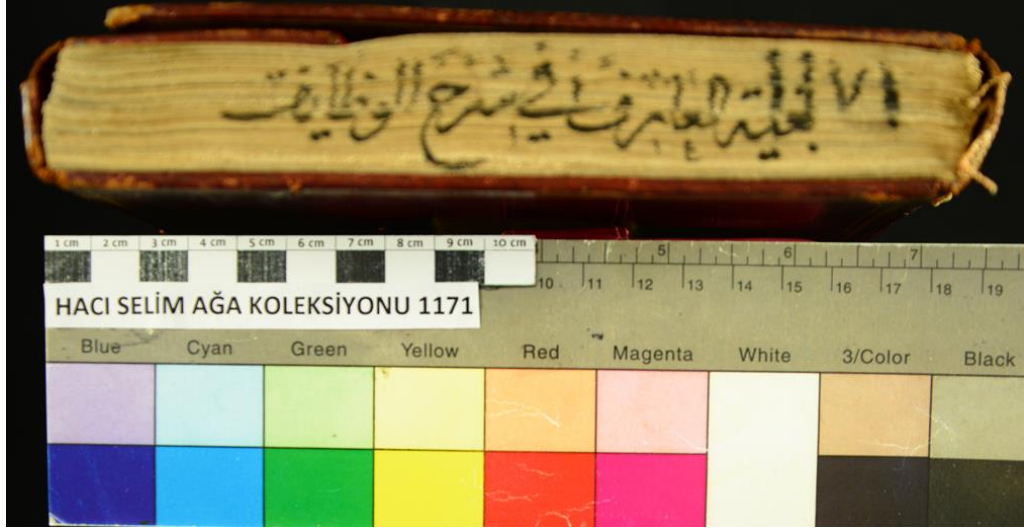 ١٧١ بغية العارف في شرح الوظايف
1 cm 2 cm 3 cm 4 cm 5 cm 6 cm 7 cm 8 cm 9 cm 10 cm
5 6 7
10 11 12 13 14 15 16 17 18 19
HACI SELİM AĞA KOLEKSİYONU 1171
Blue Cyan Green Yellow Red Magenta White 3/Color Black